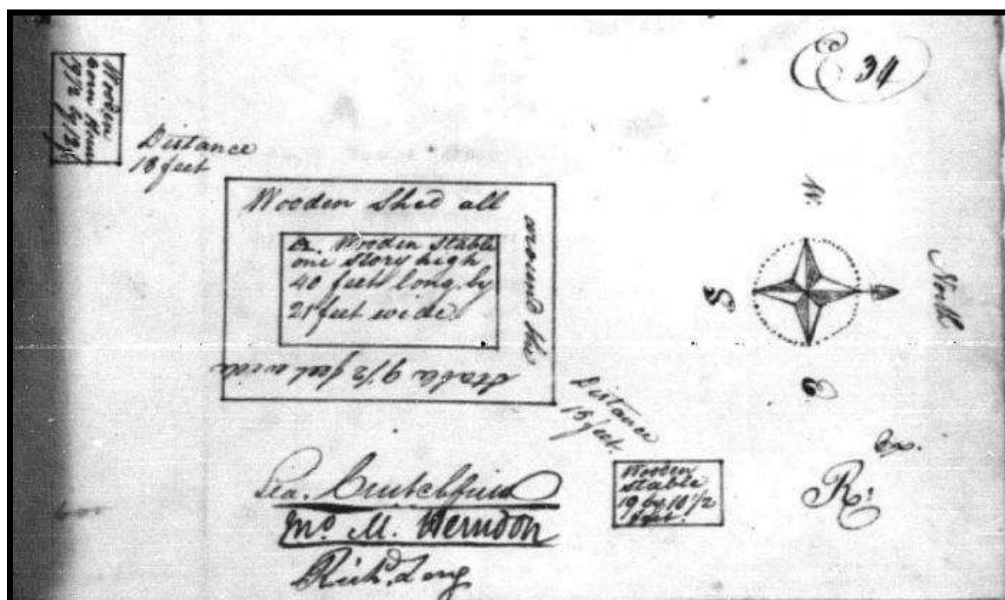 E 34
Wooden
Corn House
9 1/2 by 12 f
Distance
18 feet
Wooden Shed all
around the
Stable 9 1/2 feet wide
A. Wooden Stable
one story high
40 feet long by
21 feet wide.
W.
S
North
E
Distance
15 feet.
Wooden
Stable
19 by 10 1/2
feet.
Ex.
R:
Geo. Crutchfield
Jno M. Herndon
Richd. Long